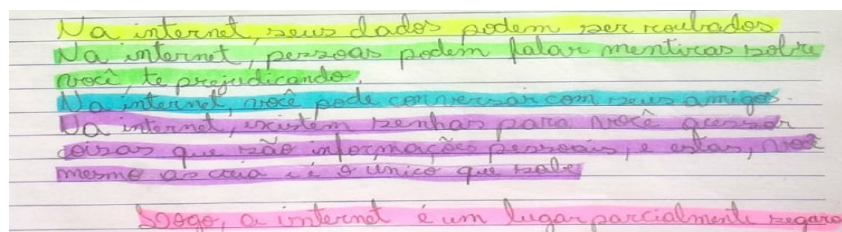 Na internet, seus dados podem ser roubados
Na internet, pessoas podem falar mentiras sobre
você, te prejudicando.
Na internet, você pode conversar com seus amigos.
Na internet, existem senhas para você acessar
coisas que são informações pessoais, e estas, você
mesmo as cria e é o único que sabe
Logo, a internet é um lugar parcialmente seguro